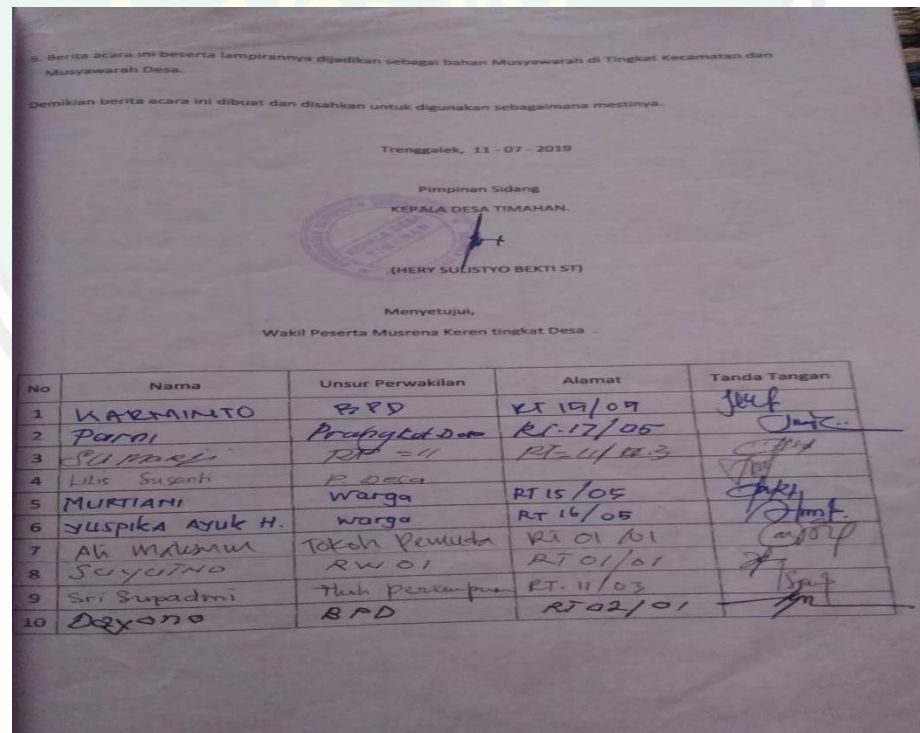 5. Berita acara ini beserta lampirannya dijadikan sebagai bahan Musyawarah di Tingkat Kecamatan dan
Musyawarah Desa.
Demikian berita acara ini dibuat dan disahkan untuk digunakan sebagaimana mestinya.
Trenggalek, 11 - 07 - 2019
Pimpinan Sidang
KEPALA DESA TIMAHAN.
(HERY SULISTYO BEKTI ST)
Menyetujui,
Wakil Peserta Musrena Keren tingkat Desa .
No Nama Unsur Perwakilan Alamat Tanda Tangan
1 KARMINTO BPD RT 19/09
2 Parni RT.17/05
3 RT = 11 RT = 11/
4 Lilis Susanti P. Desa
5 MURTIANI Warga RT 15/05
6 YUSPIKA AYUK H. Warga RT 16/05
7 Ali Makmur Tokoh Pemuda Rt 01/01
8 Suyutno RW 01 RT 01/01
9 Sri Supadmi RT. 11/03
10 Daryono BPD RT 02/01